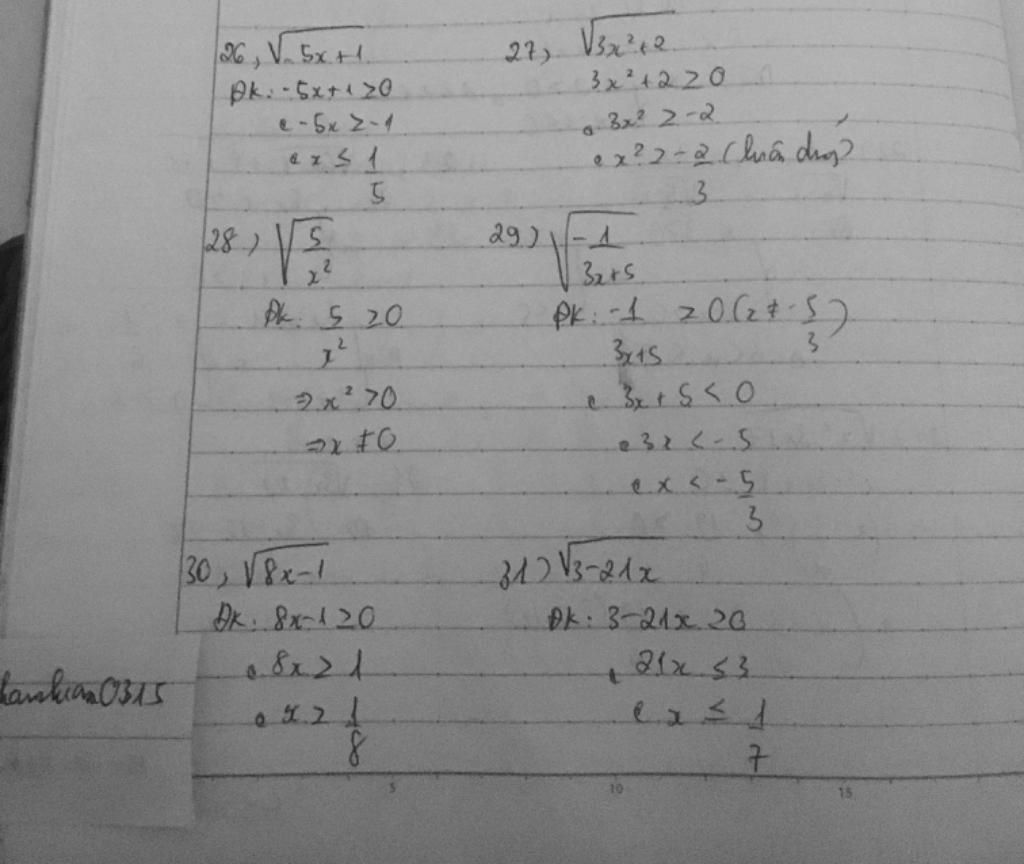 26, √-5x+1
ĐK: -5x+1 ≥0
-5x ≥ -1
x ≤ 1/5
27, √3x²+2
3x²+2 ≥ 0
3x² ≥ -2
x² ≥ -2/3 (luôn đúng)
28) √5/x²
ĐK: 5/x² ≥0
⇒ x² >0
⇒ x ≠ 0
29) √-1/3x+5
ĐK: -1/3x+5 ≥ 0 (x ≠ -5/3)
3x + 5 < 0
3x < -5
x < -5/3
30, √8x-1
ĐK: 8x-1 ≥0
8x ≥ 1
x ≥ 1/8
31) √3-21x
ĐK: 3-21x ≥0
21x ≤ 3
x ≤ 1/7
5 10 15